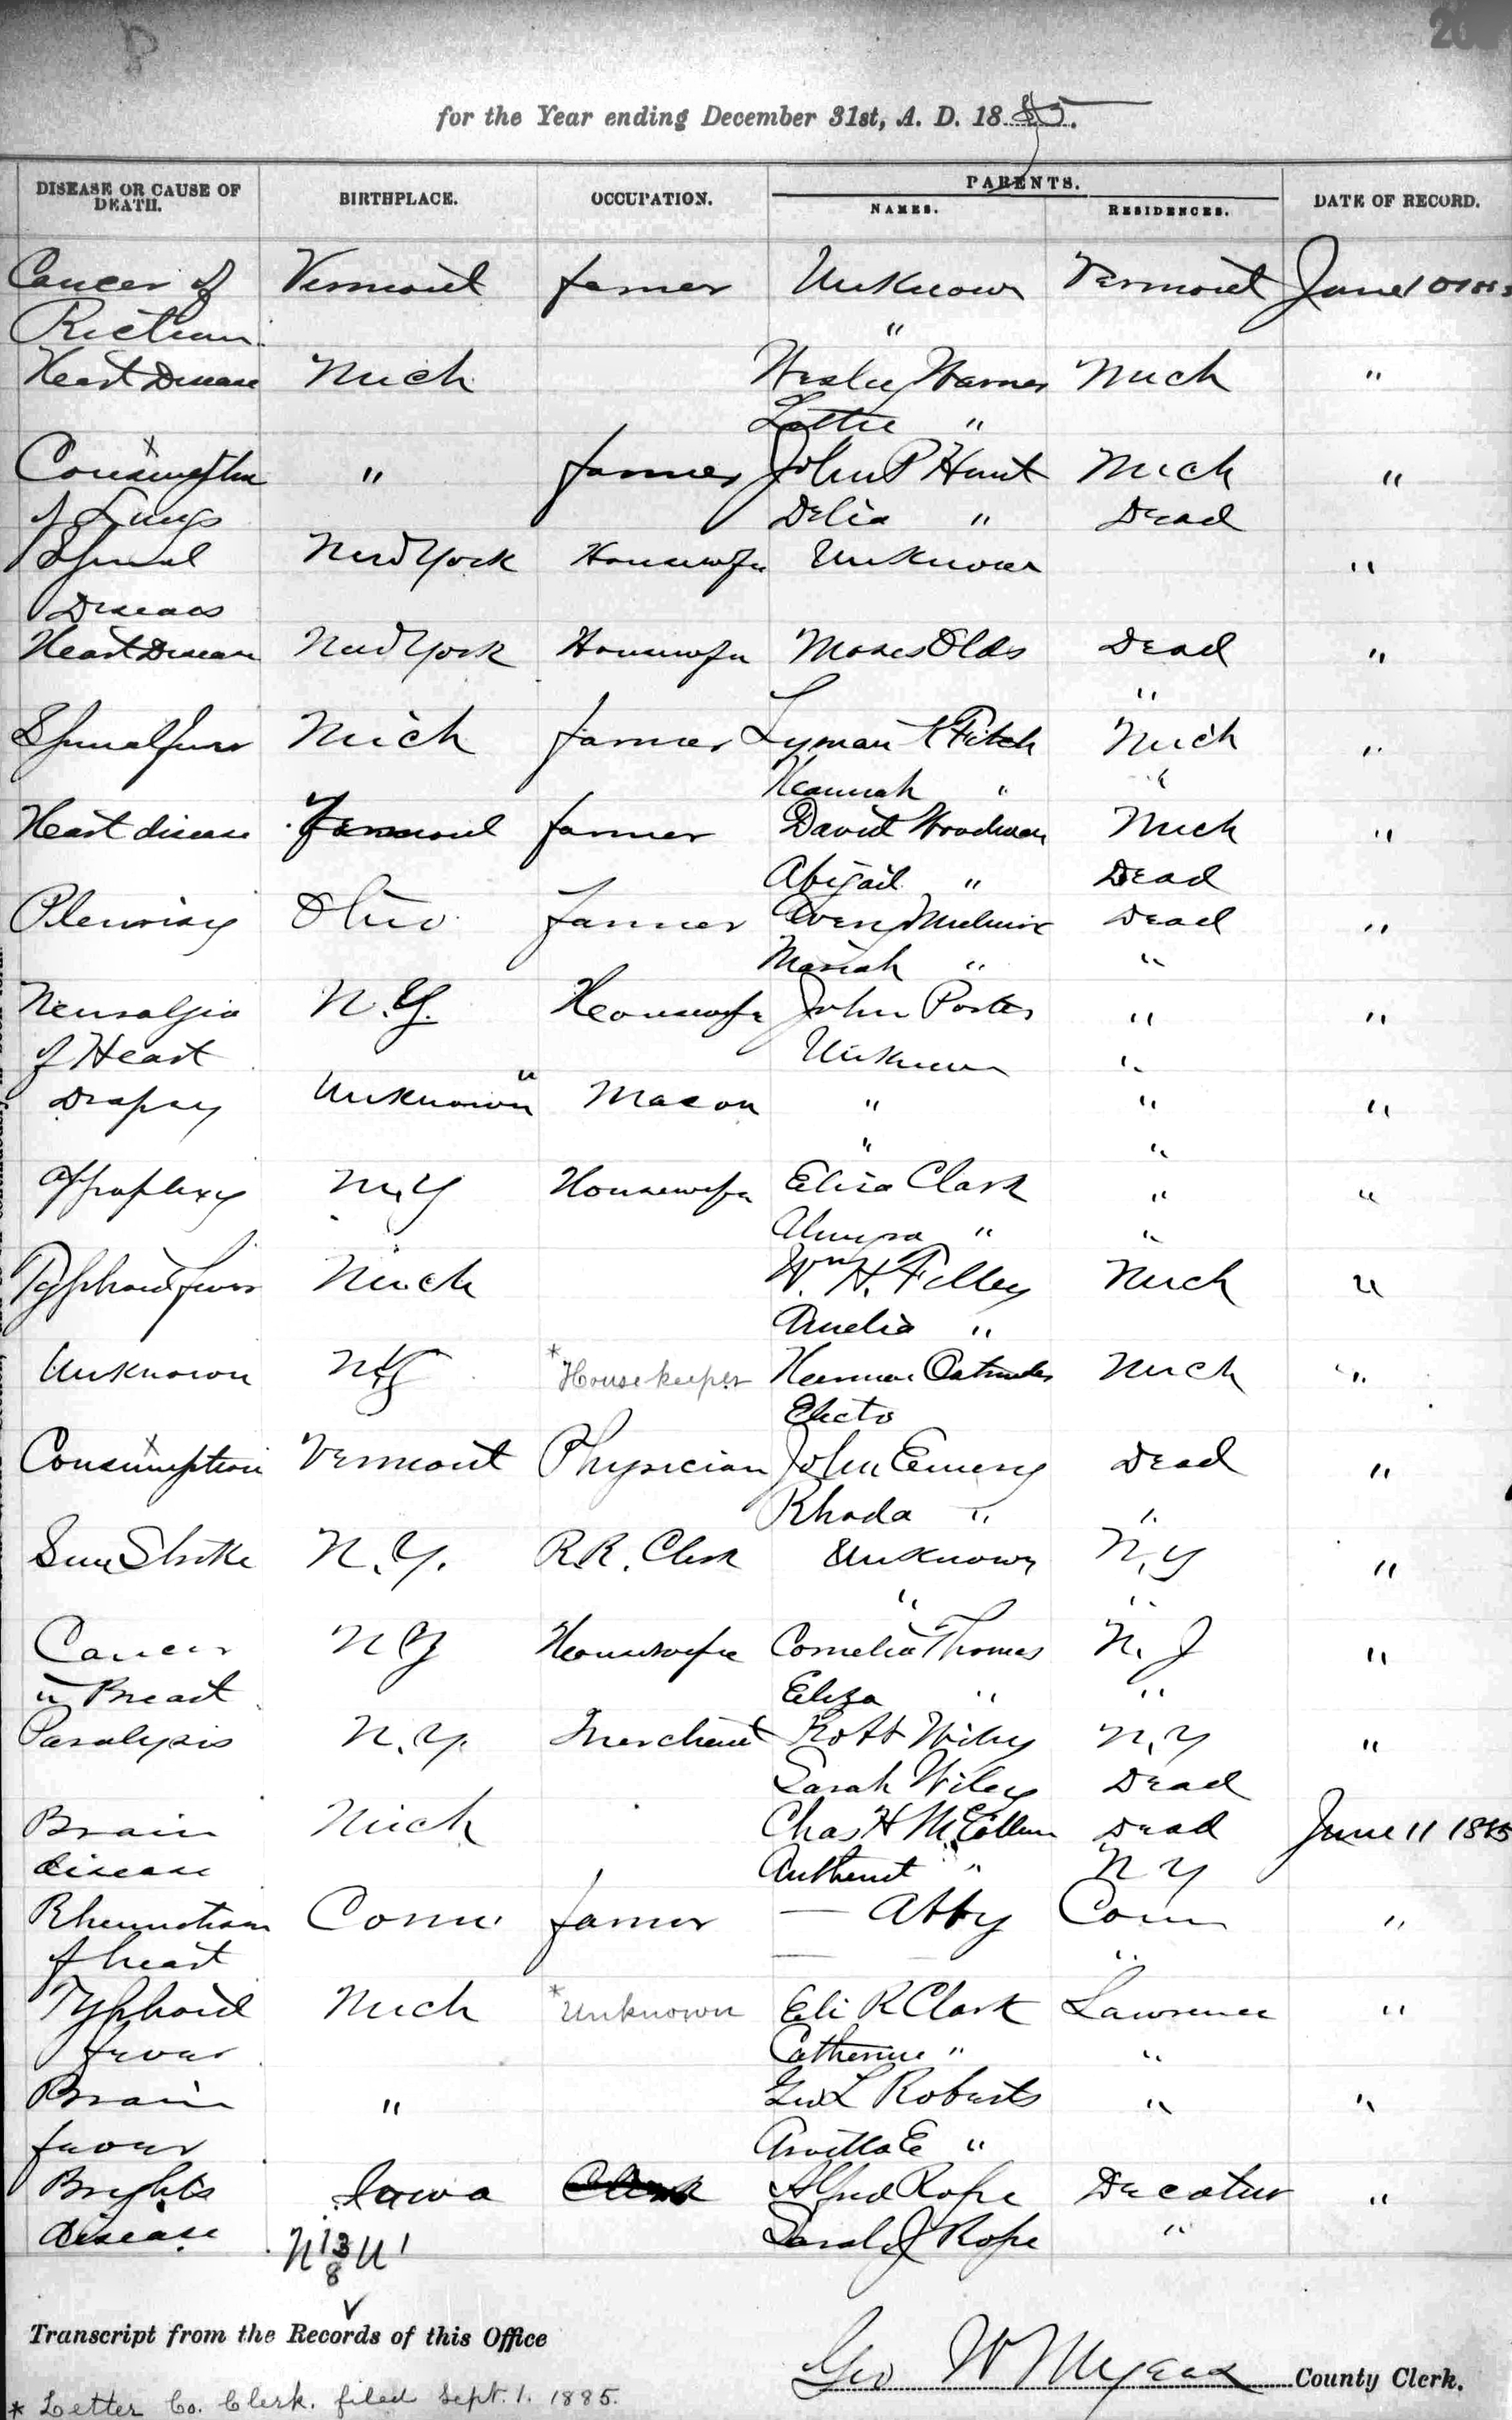 for the Year ending December 31st, A. D. 1885.
DISEASE OR CAUSE OF DEATH. BIRTHPLACE. OCCUPATION. PARENTS. NAMES. RESIDENCES. DATE OF RECORD.
Cancer of Vermont farmer Unknown Vermont June 10
Rectum "
Heart Disease Mich Wesley Warner Mich "
Lottie "
Consumption " farmer John P Hunt Mich "
of Lungs Delia " Dead
Spinal New York Housewife Unknown "
Diseases
Heart Disease New York Housewife Moses Olds Dead "
"
Spinal fever Mich farmer Lyman Fitch Mich "
Hannah " "
Heart disease Vermont farmer David Woodman Mich "
Abigail " Dead
Pleurisy Ohio farmer Avery Dead "
Mariah " "
Neuralgia N.Y. Housewife John Porter " "
of Heart Unknown "
Dropsy Unknown " Mason " " "
" "
Appoplexy N.Y Housewife Eliza Clark " "
Almyra " "
Typhoid fever Mich Wm H. Filley Mich "
Amelia "
Unknown N.Y *Housekeeper Herman Mich "
Electa
Consumption Vermont Physician John Emery Dead "
Rhoda " "
Sun Stroke N.Y. R.R. Clerk Unknown N.Y "
" "
Cancer N Y Housewife Cornelia Thomas N. J "
in Breast Eliza " "
Paralysis N.Y. Merchant Robt Wiley N.Y "
Sarah Wiley Dead
Brain Mich Chas H McCollum Dead June 11 1885
disease " N Y
Rheumatism Conn farmer — Abby Conn "
of heart — "
Typhoid Mich *Unknown Eli R Clark Lawrence "
fever Catherine " "
Brain " Geo L Roberts " "
fever Arvilla E "
Brights Iowa Clerk Alfred Rope Decatur "
disease Sarah J Rope "
N 13 U 1
8
Transcript from the Records of this Office
Geo W Myers County Clerk.
* Letter Co. Clerk. filed Sept. 1. 1885.